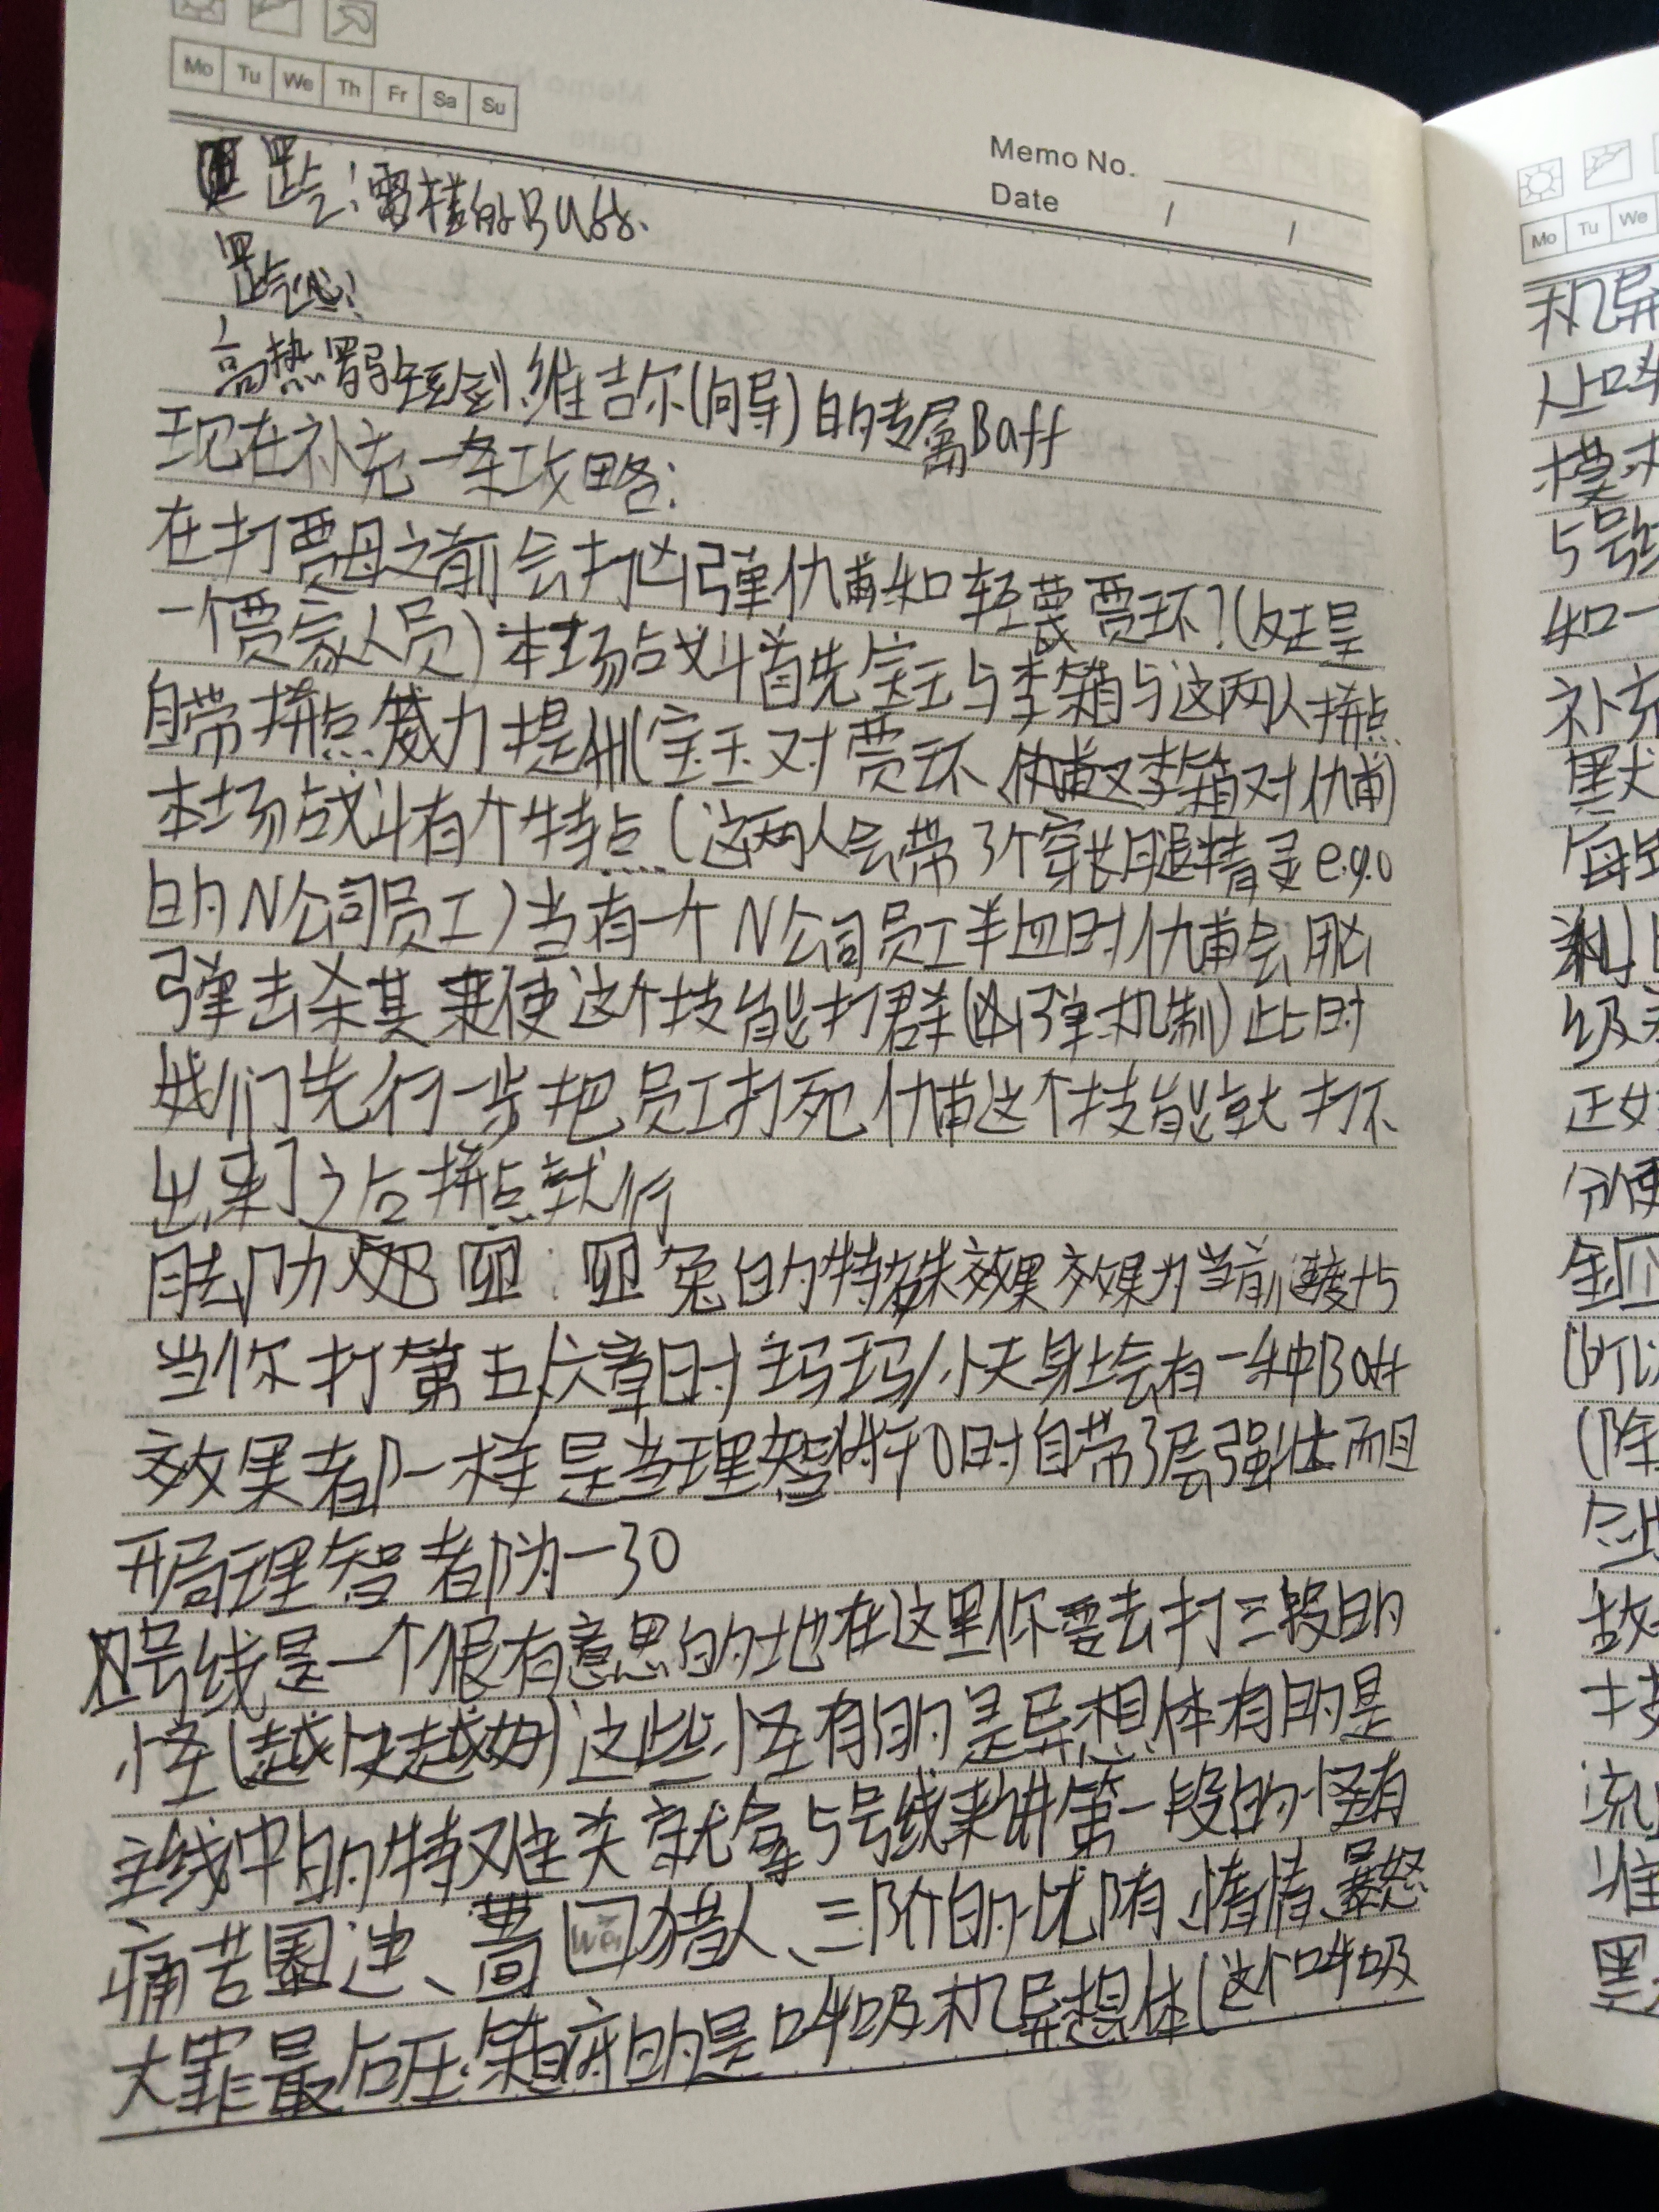 Mo Tu We Th Fr Sa Su
Memo No.
Date / /
罡气:雷横的Buff.
罡气
高热 短剑:维吉尔(向导)的专属Baff
现在补充一条攻略:
在打贾母之前会打凶弹仇甫和轻蔑贾环?(反正是
一个贾家人员)本场战斗首先宝玉与李箱与这两人拼点
自带拼点威力提升(宝玉对贾环、李箱对仇甫)
本场战斗有个特点(这两人会带3个穿长腿精灵e.g.o
的N公司员工)当有一个N公司员工半血时仇甫会用凶
弹去杀其来使这个技能打群(凶弹机制)此时
我们先行一步把员工打死仇甫这个技能就打不
出来了之后拼点就行
脑叶 四:四兔的特殊效果效果为当前速度+5
当你打第五,六章时主玛玛/小夫身上会有一种Baff
效果都一样是当理智低于0时自带3层强壮而且
开局理智都为-30
四号线是一个很有意思的地在这里你要去打三段的
怪(越快越好)这些怪有的是异想体有的是
主线中的特难关就拿5号线来讲第一段的怪有
痛苦 、 wān 猎人、三阶的忧郁、惰惰、暴怒
大罪最后压箱底的是呼吸机异想体(这个呼吸
Mo Tu We
机异
模
5号线
知一
补充
默
每
级
正好
分
(可以
(除
故
技
流
准
黑